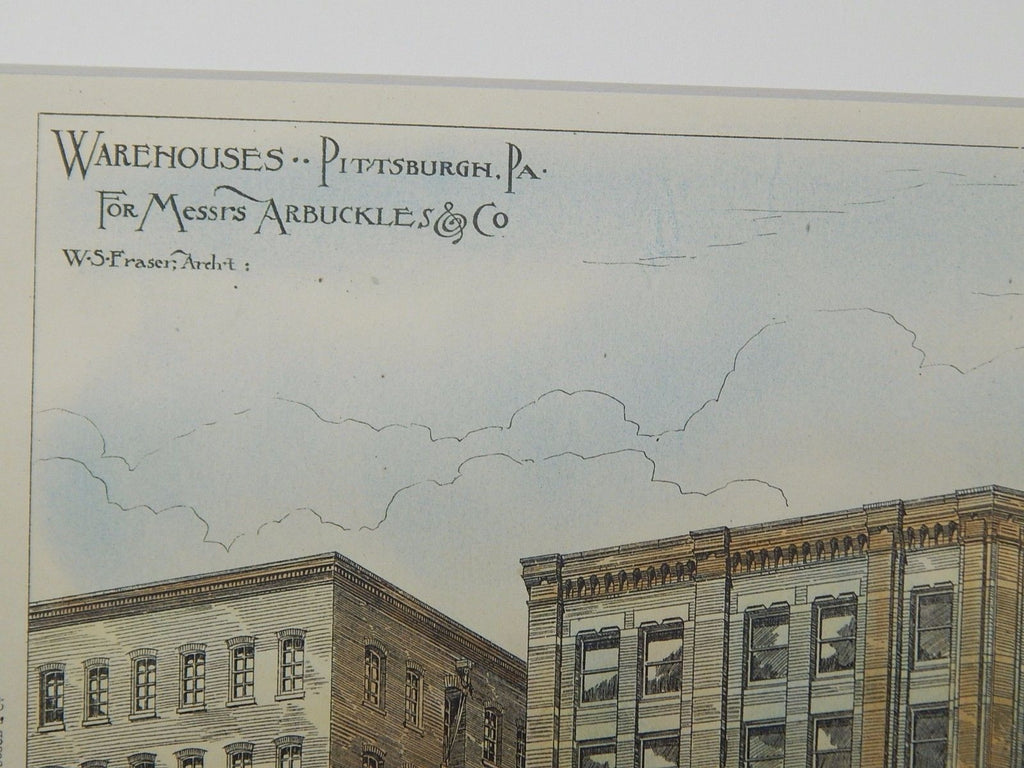 WAREHOUSES·· PITTSBURGH, PA·
FOR MESSRS ARBUCKLES & CO
W·S·Fraser, Archt: